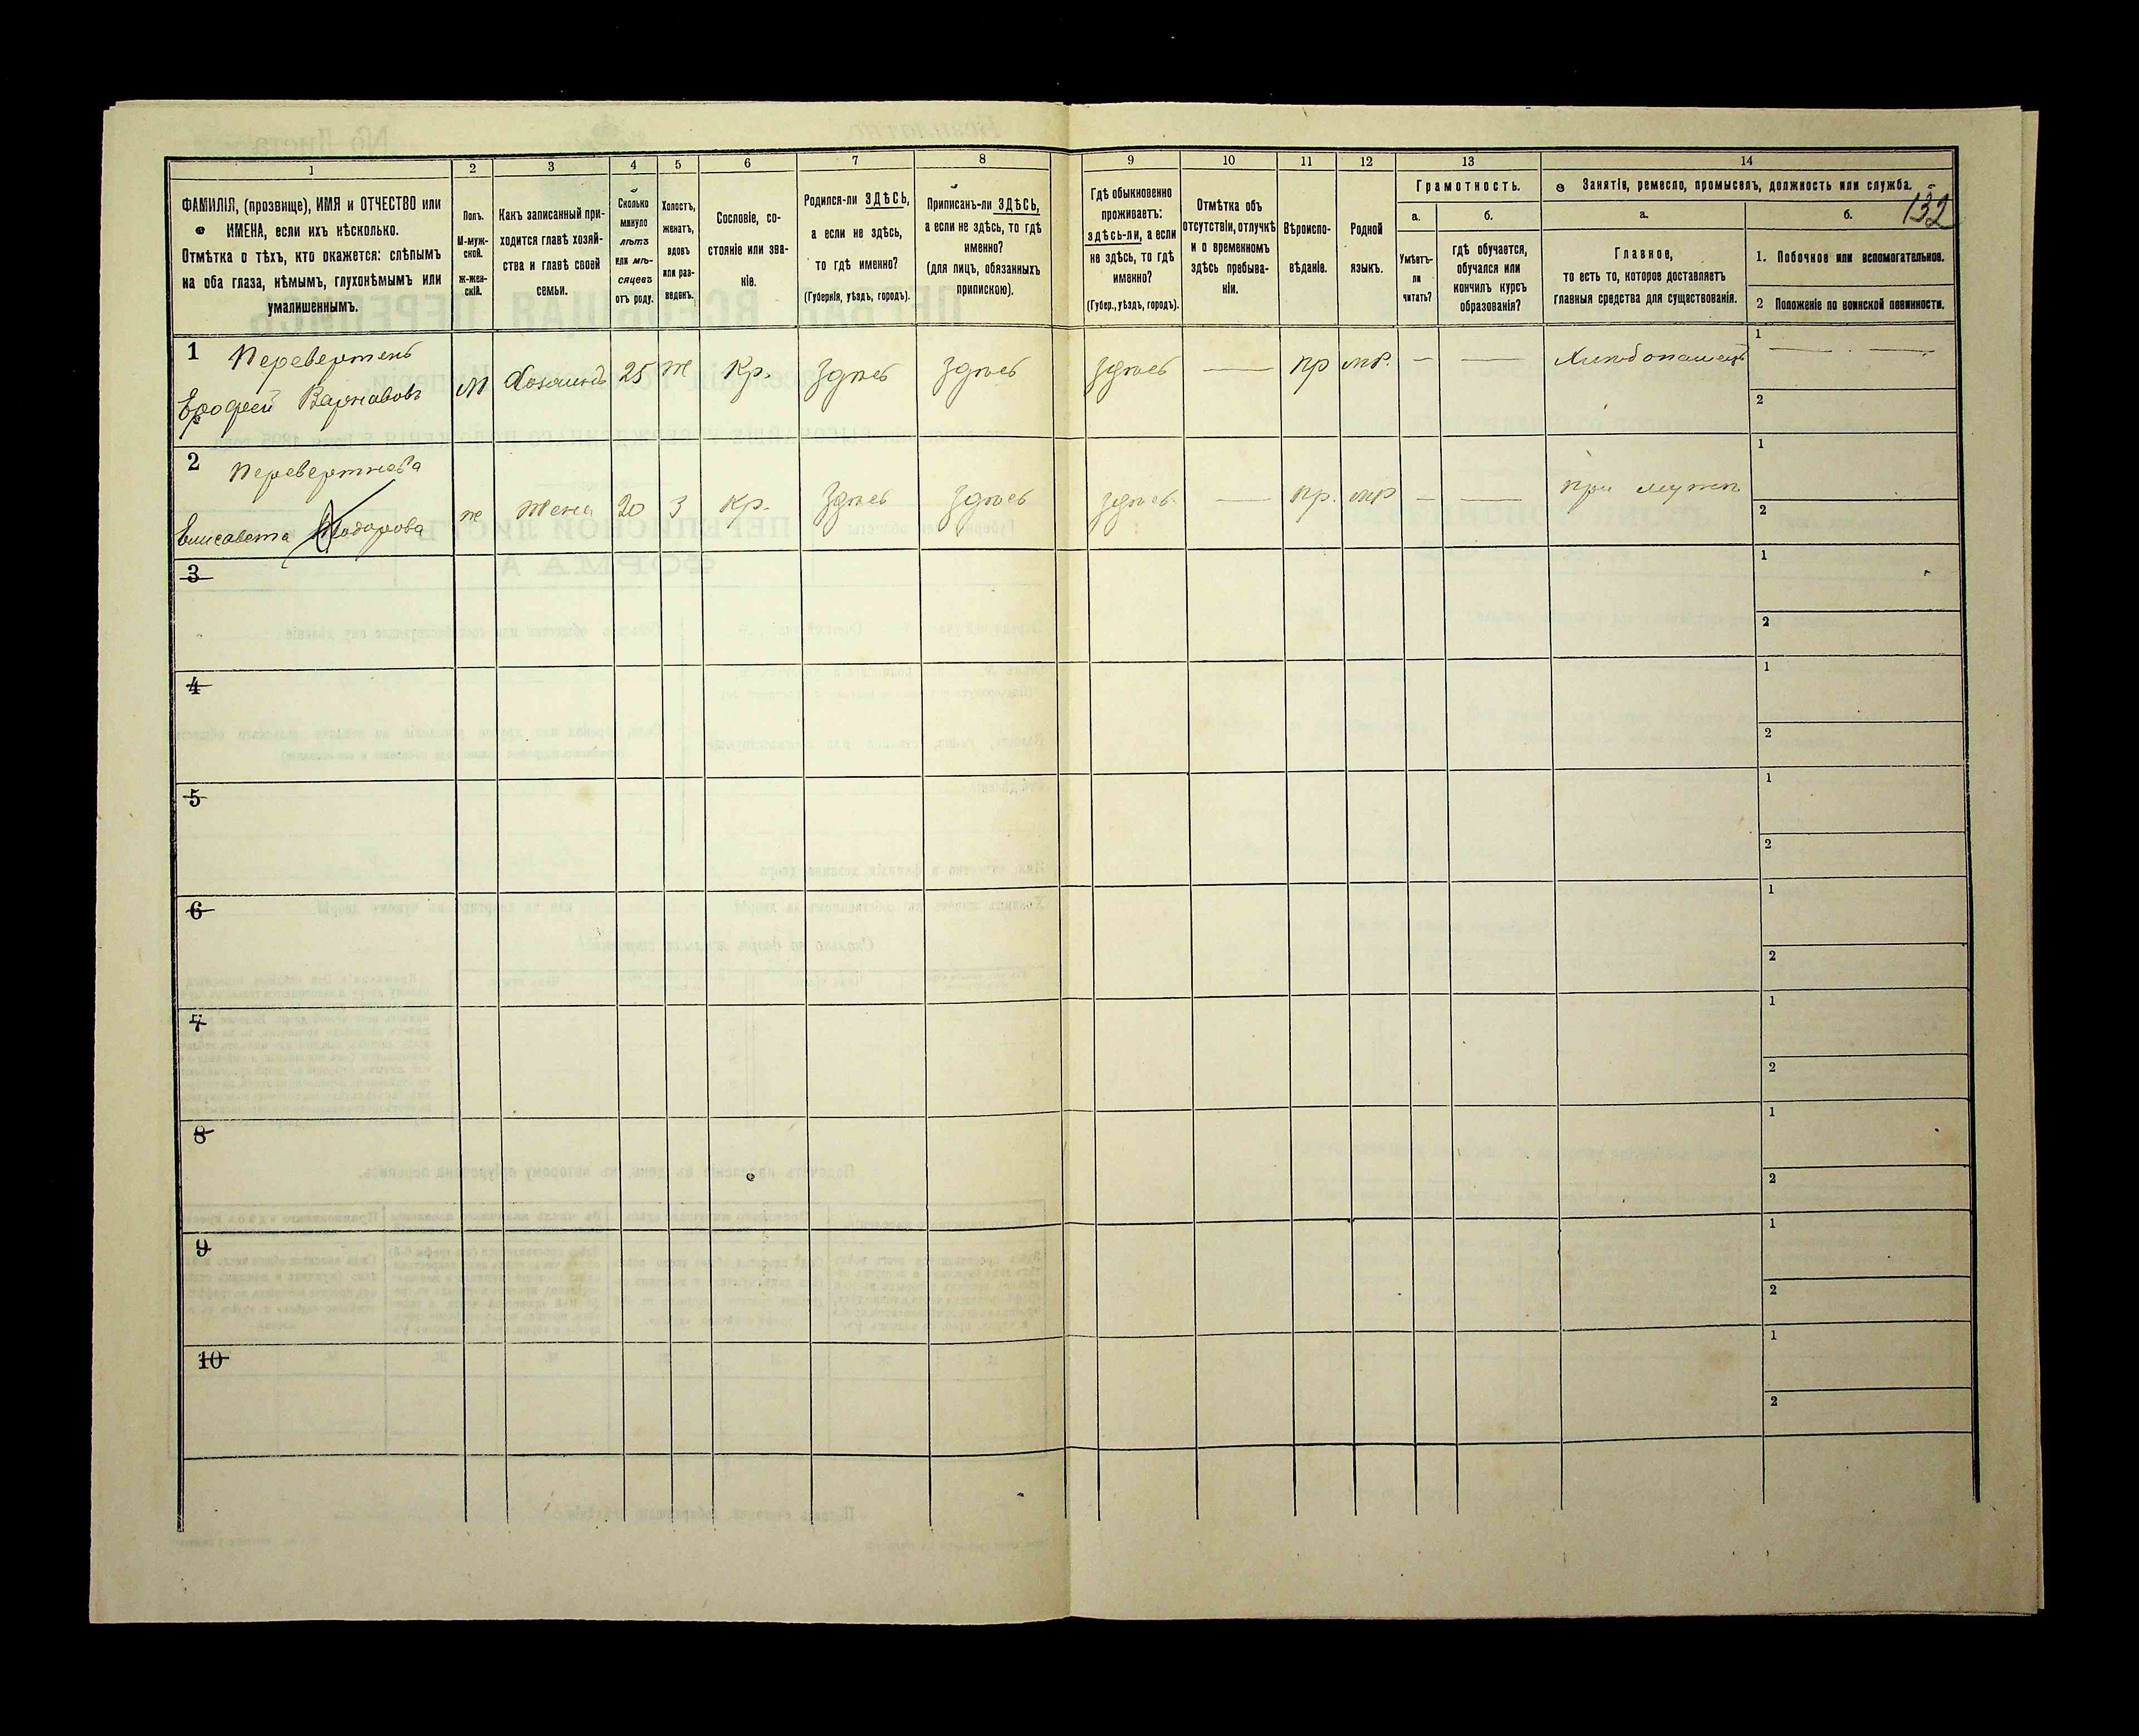 132
1 2 3 4 5 6 7 8 9 10 11 12 13 14
ФАМИЛІЯ, (прозвище), ИМЯ и ОТЧЕСТВО или
ИМЕНА, если ихъ нѣсколько.
Отмѣтка о тѣхъ, кто окажется: слѣпымъ
на оба глаза, нѣмымъ, глухонѣмымъ или
умалишеннымъ.
Полъ.
М-муж-
ской.
ж-жен-
скій.
Какъ записанный при-
ходится главѣ хозяй-
ства и главѣ своей
семьи.
Сколько
минуло
лѣтъ
или мѣ-
сяцевъ
отъ роду.
Холостъ,
женатъ,
вдовъ
или раз-
веденъ.
Сословіе, со-
стояніе или зва-
ніе.
Родился-ли ЗДѢСЬ,
а если не здѣсь,
то гдѣ именно?
(Губернія, уѣздъ, городъ).
Приписанъ-ли ЗДѢСЬ,
а если не здѣсь, то гдѣ
именно?
(для лицъ, обязанныхъ
припискою).
Гдѣ обыкновенно
проживаетъ:
здѣсь-ли, а если
не здѣсь, то гдѣ
именно?
(Губер., уѣздъ, городъ).
Отмѣтка объ
отсутствіи, отлучкѣ
и о временномъ
здѣсь пребыва-
ніи.
Вѣроиспо-
вѣданіе.
Родной
языкъ.
Грамотность.
а.
Умѣетъ-
ли
читать?
б.
гдѣ обучается,
обучался или
кончилъ курсъ
образованія?
Занятіе, ремесло, промыселъ, должность или служба.
а.
Главное,
то есть то, которое доставляетъ
главныя средства для существованія.
б.
1. Побочное или вспомогательное.
2 Положеніе по воинской повинности.
1 Перевертень
Ерофей Варнавовъ
М Хозяинъ 25 Ж Кр. Здѣсь Здѣсь Здѣсь — пр мр. — — Хлѣбопашецъ
1 — —
2
2 Перевертнева
Елисавета Тодорова
ж Жена 20 З Кр. Здѣсь Здѣсь Здѣсь — пр. мр — — При мужѣ
1
2
3
1
2
4
1
2
5
1
2
6
1
2
7
1
2
8
1
2
9
1
2
10
1
2